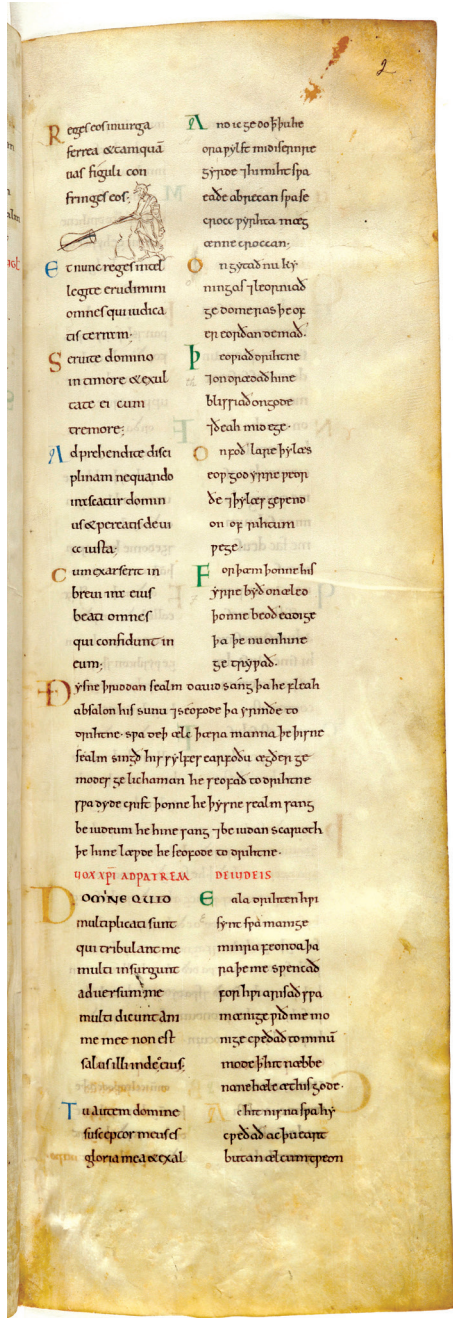 2
Reges eos in uirga
ferrea & tamquā
uas figuli con
fringes eos;
Et nunc reges intel
legite erudimini
omnes qui iudica
tis terram·
Seruite domino
in timore & exul
tate ei cum
tremore;
Adprehendite disci
plinam nequando
irascatur domin
us & pereatis de ui
a iusta·
Cum exarserit in
breui ira eius
beati omnes
qui confidunt in
eum;
And ic gedo þ þu heo
ra wylst mid isenre
gyrde ⁊ hi miht swa
eaðe abrecan swa se
croccwyrhta mæg
ænne croccan·
Ongytað nu ky
ningas ⁊ leorniað
ge domeras þe ofer
eorðan demað·
Þeowiað drihtne
⁊ ondrædað hine
blissiað on gode
⁊ ðeah mid ege·
Onfoð lare þy læs
eow god yrre weor
ðe ⁊ þy læs ge wend
on of rihtum
wege·
Forþæm þonne his
yrre byð onæled
þonne beoð eadige
þa þe nu on hine
getrywað·
Ðysne þriddan sealm dauid sang þa he fleah
absalon his sunu ⁊ seofode þa yrmðe to
drihtne· swa deþ ælc þæra manna þe þisne
sealm singð his sylfes earfoðu ægðer ge
modes ge lichaman he seofað to drihtne
swa dyde crist þonne he þysne sealm sang
be iudeum he hine sang ⁊ be iudan scarioth
þe hine læwde he seofode to drihtne·
UOX XPI AD PATREM DE IUDEIS
DOMINE QUID
multiplicati sunt
qui tribulant me
multi insurgunt
aduersum me
multi dicunt ani
mę meę non est
salus illi in deo eius;
Tu autem domine
susceptor meus es
gloria mea & exal
Eala drihten hwi
synt swa manige
minra feonda þa
ra þe me swencað
for hwi arisað swa
mænige wið me mo
nige cweðað to minū
mode þ hit næbbe
nane hæle æt his gode·
Ac hit nis na swa hy
cweðað ac þu eart
butan ælcum tweon